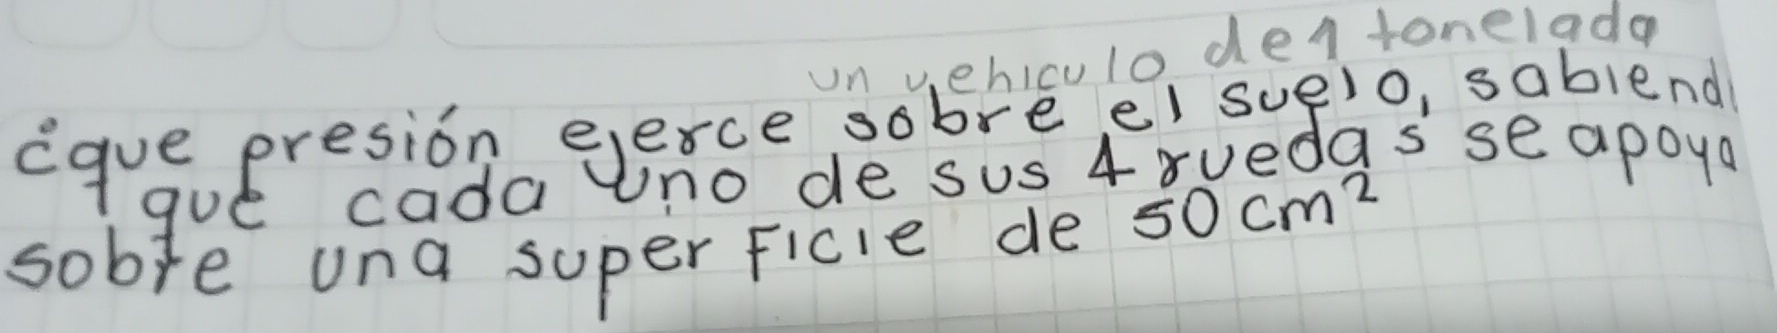 un vehiculo de 1 tonelada
¿que presión ejerce sobre el suelo, sabiend
que cada uno de sus 4 ruedas se apoya
sobre una superficie de 50 cm²